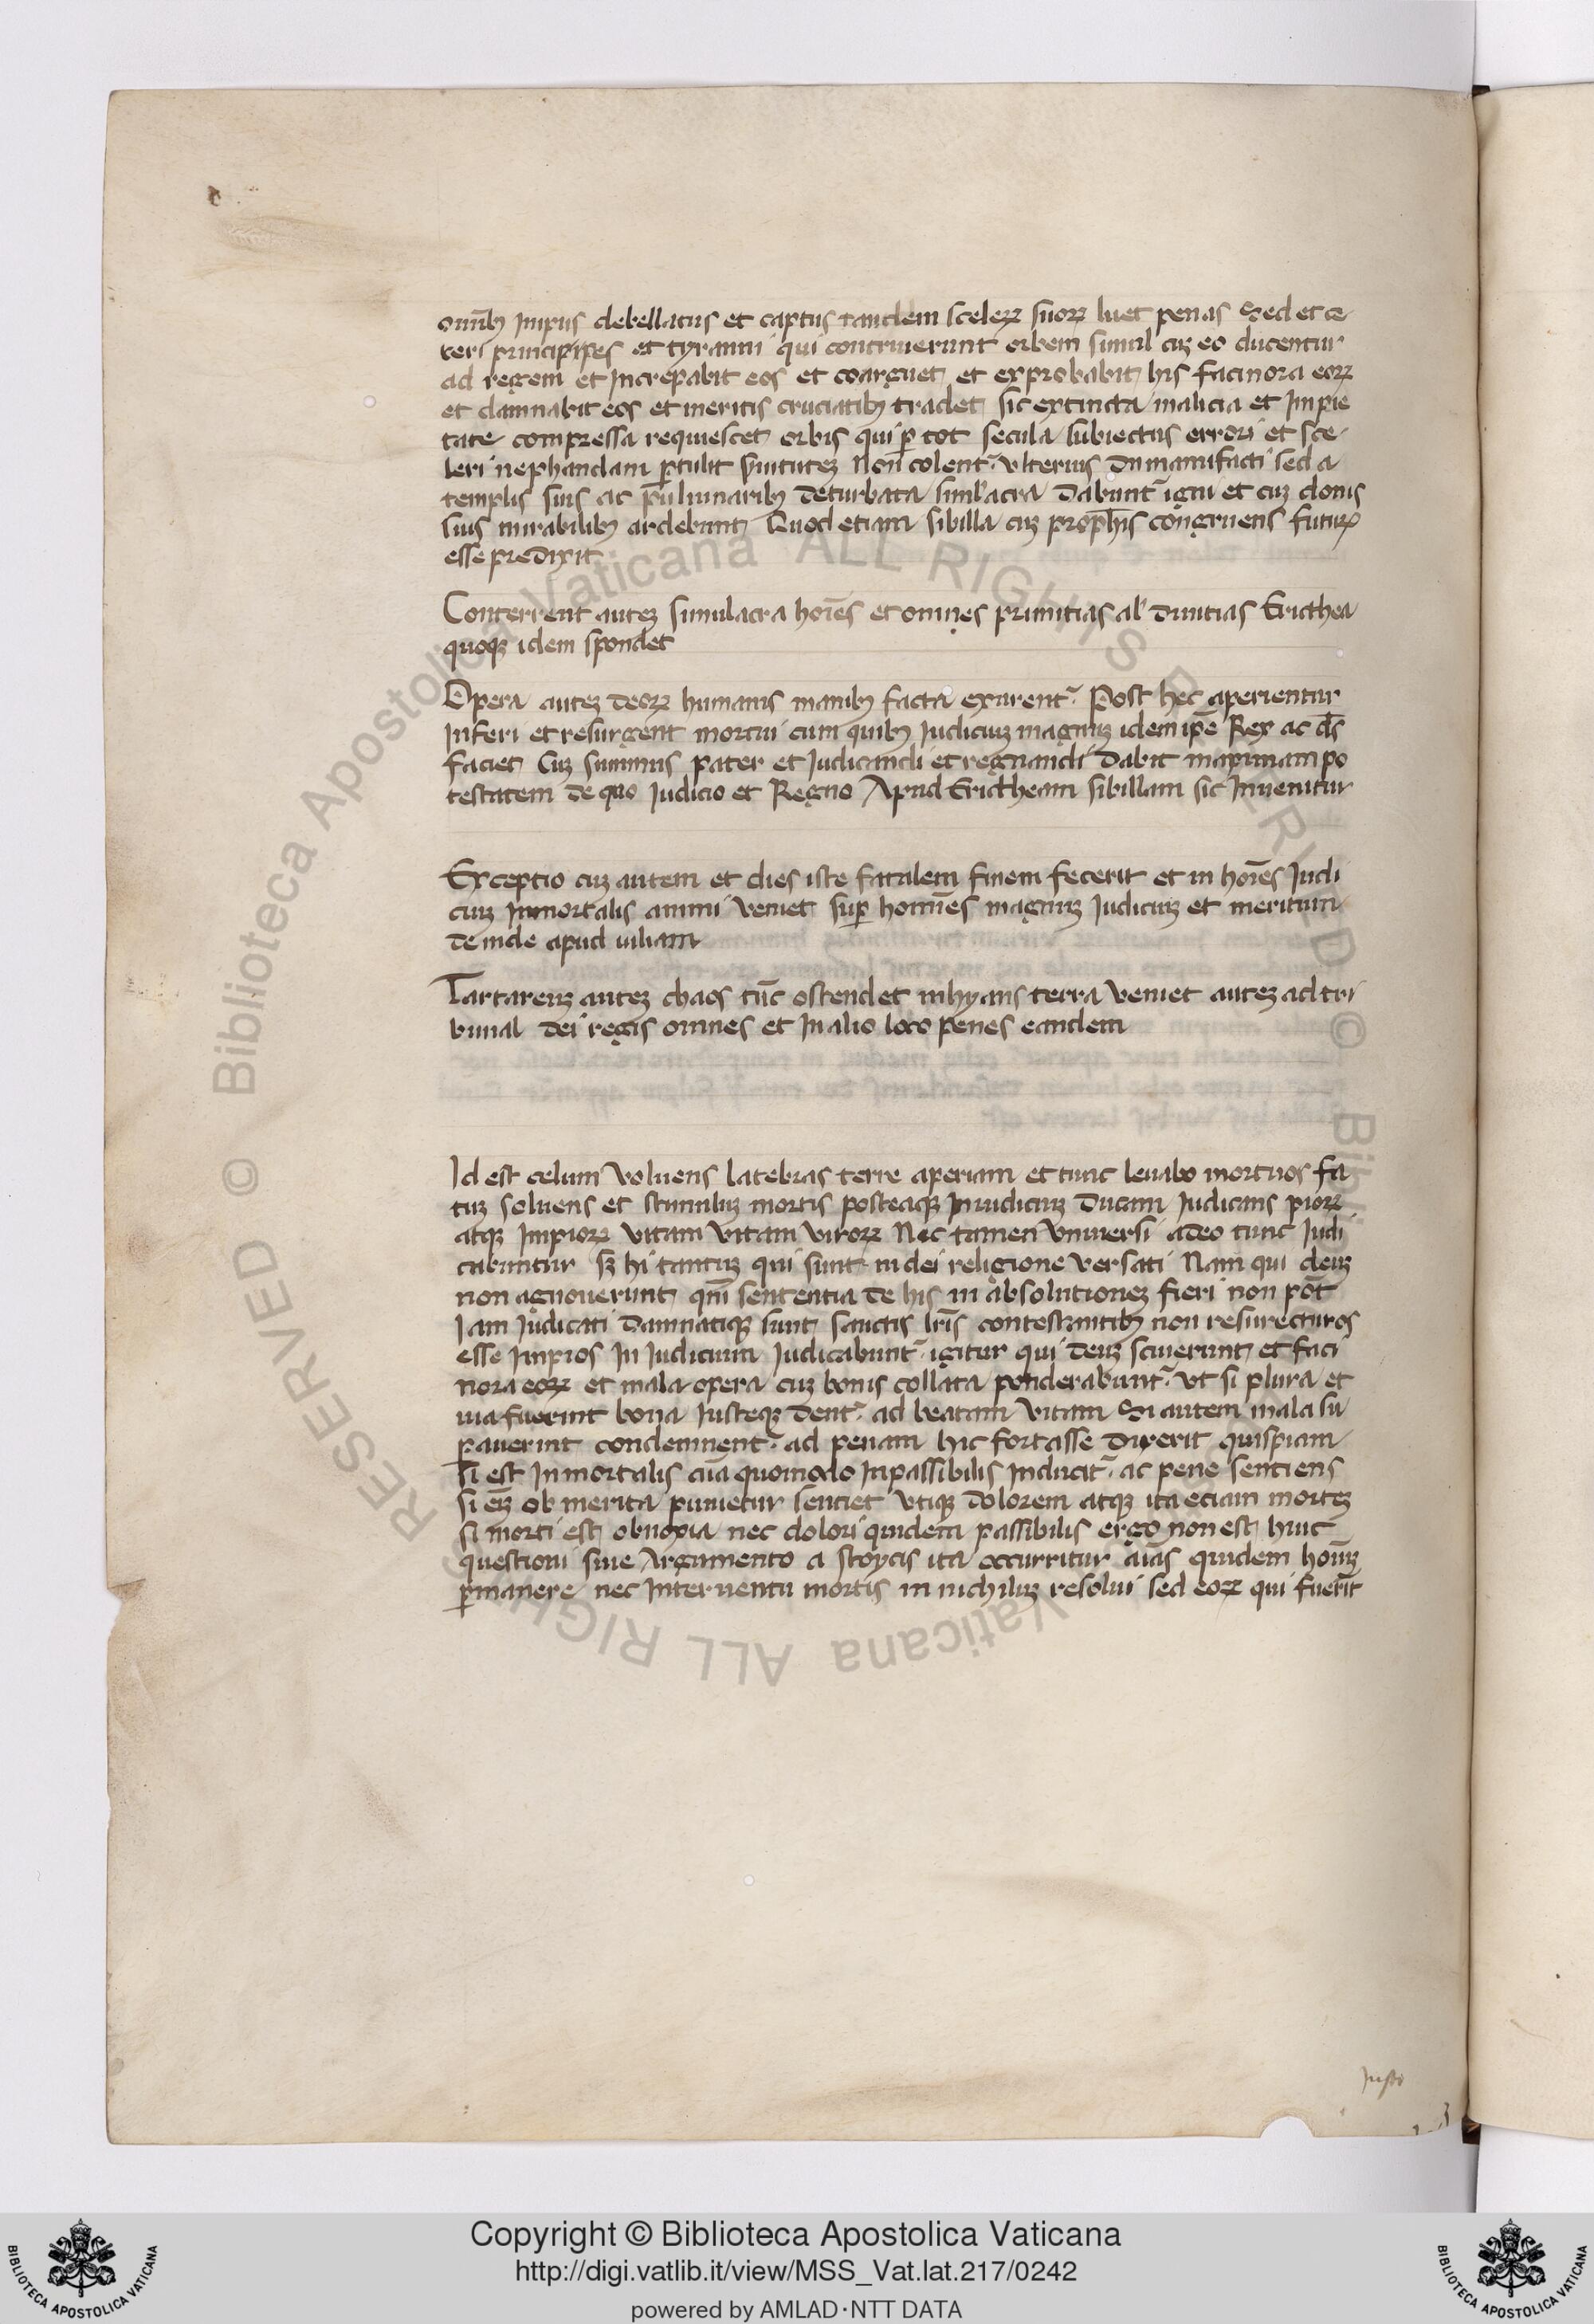 omībꝫ Impiis debellatus et captus tandem sceleꝝ suoꝝ luet penas Sed et ce
teri principipes et tyranni qui contriuerunt orbem simul cuꝫ eo ducentur
ad regem et Increpabit eos et coarguet et exprobabit his facinora eoꝝ
et damnabit eos et meritis cruciatibꝫ tradet sic extincta malicia et Impie
tate compressa requiescet orbis qui ꝑ tot secula subiectus errori et sce
leri nephandam ꝑtulit ẜuituteꝫ Non colent᷑ vlterius Dii manufacti sed a
templis suis ac puluinaribꝫ deturbata siml'acra Dabunt᷑ igni et cuꝫ donis
suis mirabilibꝫ ardebunt Quod etiam sibilla cuꝫ proph̄is congruens futuꝝ
esse predixit
Conterrent auteꝫ simulacra hoīes et omnes primitias al' diuitias Ericthea
quoqꝫ idem spondet
Opera auteꝫ deoꝝ humanis manibꝫ facta exurent᷑ Post hec aperientur
Inferi et resurgent mortui cum quibꝫ Iudiciuꝫ magnuꝫ idem ip̄e Rex ac ds̄
faciet Cui summus pater et Iudicandi et regnandi Dabit maximam po
testatem de quo Iudicio et Regno Apud Ericthream sibillam sic Inuenitur
Exceptio cuꝫ autem et dies iste fatalem finem fecerit et in hoīes Iudi
ciuꝫ Inmortalis animi veniet suꝑ homīes magnuꝫ Iudiciuꝫ et meritum
deinde apud uiliam
Tartareuꝫ auteꝫ chaos tūc ostendet inhyans terra veniet auteꝫ ad tri
bunal dei regis omnes et In alio loco penes eandem
Id est celum voluens latebras terre aperiam et tunc leuabo mortuos fa
tuꝫ soluens et stimuluꝫ mortis posteaqꝫ In iudiciuꝫ Ducam Iudicans pioꝝ
atqꝫ Impioꝝ vitam vitam viroꝝ Nec tamen vniuersi a deo tunc Iudi
cabuntur sꝫ hi tantuꝫ qui sunt in dei religione versati Nam qui deuꝫ
non agnouerunt qm̄ sententia de his in absolutioneꝫ fieri non pōt
Iam Iudicati Damnatiqꝫ sunt sanctis lrīs contestantibꝫ non resurecturos
esse Impios In Iudicium Iudicabunt᷑ igitur qui deuꝫ sciuerunt et faci
nora eoꝝ et mala opera cuꝫ bonis collata ponderabunt᷑ vt si plura et
uia fuerint bona Iusteqꝫ dent᷑ ad beatam vitam Si autem mala su
ꝑauerint condemnent᷑ ad penam hic fortasse dixerit quispiam
si est Inmortalis aīa quomodo Inpassibilis Inducit᷑ ac pene sentiens
si eīꝫ ob merita punietur sentiet vtiqꝫ dolorem atqꝫ ita eciam morteꝫ
si morti est obnoxia nec dolori quidem passibilis ergo non est huic
questioni siue Argumento a stoycis ita occurritur aīas quidem homīuꝫ
ꝑmanere nec Interuentu mortis in nichiluꝫ resolui sed eoꝝ qui fuerīt
Iusti
Copyright © Biblioteca Apostolica Vaticana
http://digi.vatlib.it/view/MSS_Vat.lat.217/0242
powered by AMLAD·NTT DATA
BIBLIOTECA APOSTOLICA VATICANA
BIBLIOTECA APOSTOLICA VATICANA